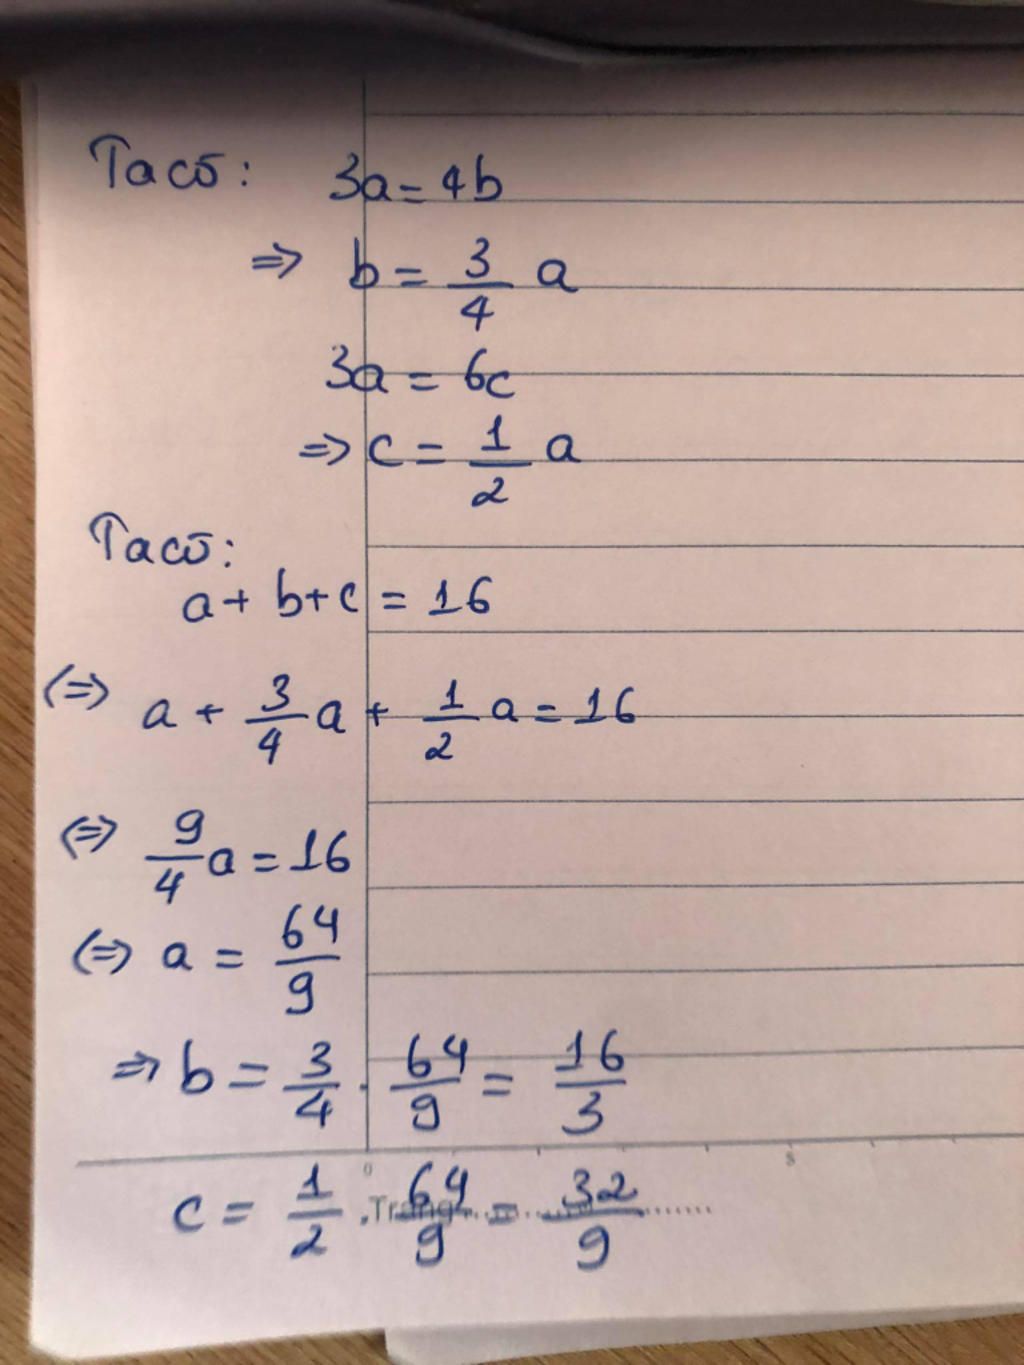 Ta có: 3a = 4b
=> b = 3/4 a
3a = 6c
=> c = 1/2 a
Ta có:
a + b + c = 16
(=> a + 3/4 a + 1/2 a = 16
(=> 9/4 a = 16
(=> a = 64/9
=> b = 3/4 . 64/9 = 16/3
0 5
c = 1/2 . 64/9 = 32/9
Trang